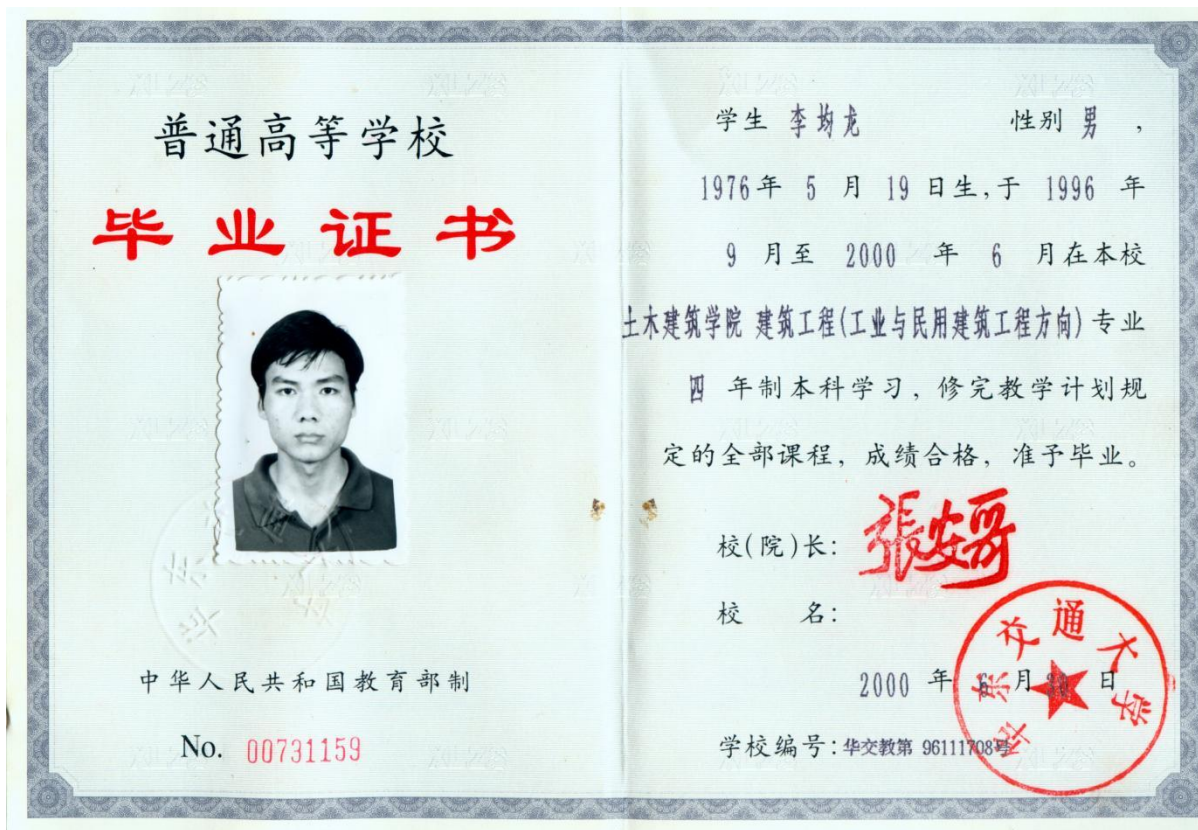 普通高等学校
毕业证书
中华人民共和国教育部制
No. 00731159
学生 李均龙 性别 男，
1976年 5 月 19 日生,于 1996 年
9 月至 2000 年 6 月在本校
土木建筑学院 建筑工程(工业与民用建筑工程方向)专业
四 年制本科学习，修完教学计划规
定的全部课程，成绩合格，准予毕业。
校(院)长: 張安哥
校 名:
华东交通大学
2000 年 6 月 日
学校编号:华交教第 96111708号